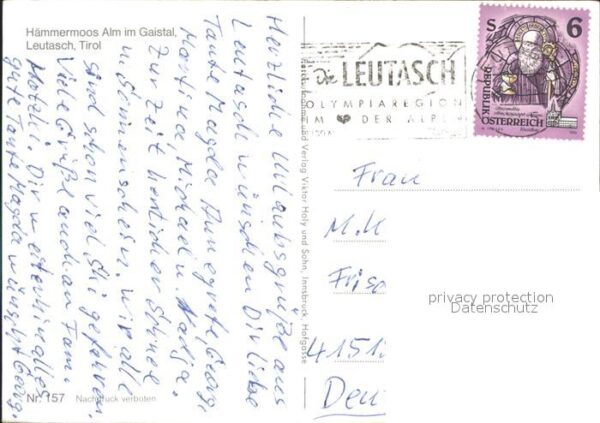 Hämmermoos Alm im Gaistal,
Leutasch, Tirol
Herzliche Urlaubsgrüße aus
Leutasch wünschen Dir liebe
Tante Magda Annegrete, Georg,
Martina, Michael u. Nadja.
Zur Zeit herrlicher Schnee
u. Sonnenschein. Wir alle
sind schon viel Ski gefahren.
Viele Grüße auch an Fam.
Dir weiterhin alles
gute Tante Magda wünscht Georg.
Nr. 157 Nachdruck verboten
Verlag Viktor Holy und Sohn, Innsbruck, Hofgasse
LEUTASCH
OLYMPIAREGION
IM DER ALPEN
S 6
REPUBLIK
ÖSTERREICH
Frau
M.K
Friso
4151
Deu
privacy protection
Datenschutz